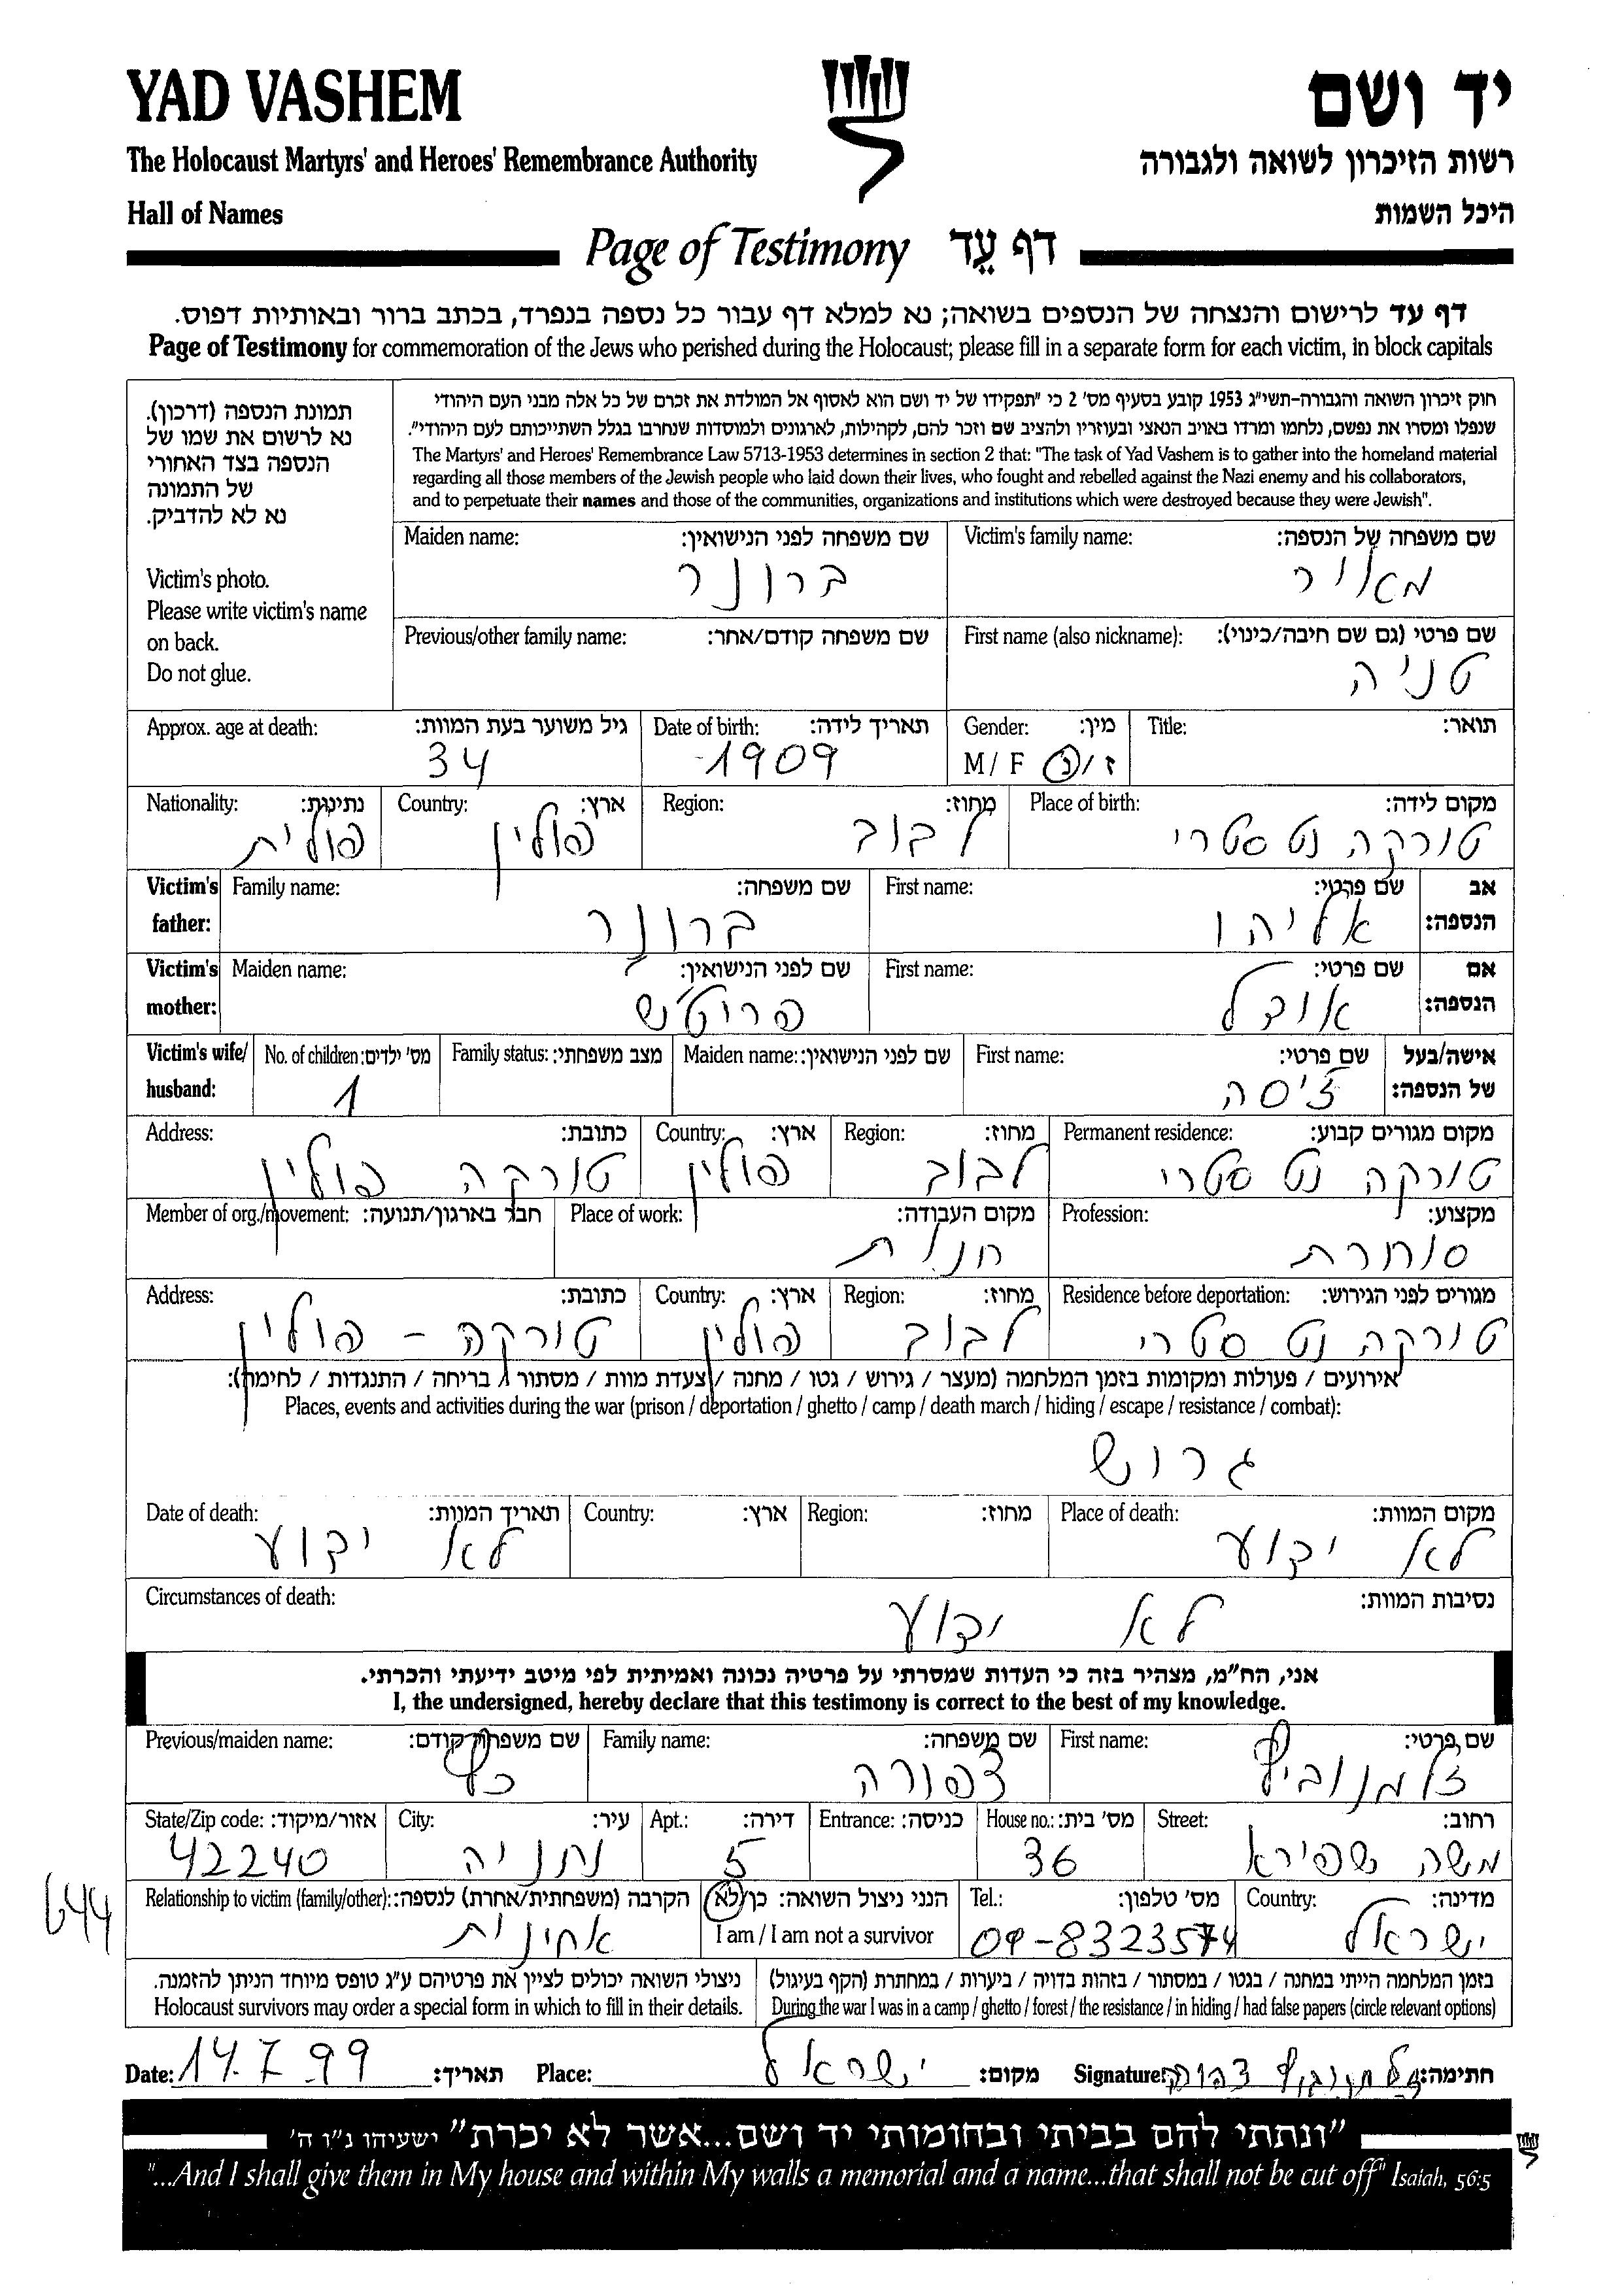 YAD VASHEM
יד ושם
The Holocaust Martyrs' and Heroes' Remembrance Authority
רשות הזיכרון לשואה ולגבורה
Hall of Names
היכל השמות
Page of Testimony דף עֵד
דף עד לרישום והנצחה של הנספים בשואה; נא למלא דף עבור כל נספה בנפרד, בכתב ברור ובאותיות דפוס.
Page of Testimony for commemoration of the Jews who perished during the Holocaust; please fill in a separate form for each victim, in block capitals
תמונת הנספה (דרכון).
נא לרשום את שמו של
הנספה בצד האחורי
של התמונה
נא לא להדביק.
Victim's photo.
Please write victim's name
on back.
Do not glue.
חוק זיכרון השואה והגבורה-תשי"ג 1953 קובע בסעיף מס' 2 כי "תפקידו של יד ושם הוא לאסוף אל המולדת את זכרם של כל אלה מבני העם היהודי
שנפלו ומסרו את נפשם, נלחמו ומרדו באויב הנאצי ובעוזריו ולהציב שם וזכר להם, לקהילות, לארגונים ולמוסדות שנחרבו בגלל השתייכותם לעם היהודי".
The Martyrs' and Heroes' Remembrance Law 5713-1953 determines in section 2 that: "The task of Yad Vashem is to gather into the homeland material
regarding all those members of the Jewish people who laid down their lives, who fought and rebelled against the Nazi enemy and his collaborators,
and to perpetuate their names and those of the communities, organizations and institutions which were destroyed because they were Jewish".
Victim's family name: שם משפחה של הנספה:
מאיר
Maiden name: שם משפחה לפני הנישואין:
ברונר
First name (also nickname): שם פרטי (גם שם חיבה/כינוי):
טניה
Previous/other family name: שם משפחה קודם/אחר:
Title: תואר:
Gender: מין:
M / F ז/נ
Date of birth: תאריך לידה:
1909
Approx. age at death: גיל משוער בעת המוות:
34
Place of birth: מקום לידה:
טורקה נט סטרי
Region: מחוז:
לבוב
Country: ארץ:
פולין
Nationality: נתינות:
פולית
Victim's father: אב הנספה:
First name: שם פרטי:
אליהו
Family name: שם משפחה:
ברונר
Victim's mother: אם הנספה:
First name: שם פרטי:
אודל
Maiden name: שם לפני הנישואין:
Victim's wife/ husband: אישה/בעל של הנספה:
First name: שם פרטי:
זיסה
Maiden name: שם לפני הנישואין:
Family status: מצב משפחתי:
No. of children: מס' ילדים:
1
Permanent residence: מקום מגורים קבוע:
טורקה נט סטרי
Region: מחוז:
לבוב
Country: ארץ:
פולין
Address: כתובת:
טורקה פולין
Profession: מקצוע:
סוחרת
Place of work: מקום העבודה:
חנות
Member of org./movement: חבר בארגון/תנועה:
Residence before deportation: מגורים לפני הגירוש:
טורקה נט סטרי
Region: מחוז:
לבוב
Country: ארץ:
פולין
Address: כתובת:
טורקה - פולין
אירועים / פעולות ומקומות בזמן המלחמה (מעצר / גירוש / גטו / מחנה / צעדת מוות / מסתור / בריחה / התנגדות / לחימה):
Places, events and activities during the war (prison / deportation / ghetto / camp / death march / hiding / escape / resistance / combat):
גרוש
Place of death: מקום המוות:
לא ידוע
Region: מחוז:
Country: ארץ:
Date of death: תאריך המוות:
לא ידוע
Circumstances of death: נסיבות המוות:
לא ידוע
אני, הח"מ, מצהיר בזה כי העדות שמסרתי על פרטיה נכונה ואמיתית לפי מיטב ידיעתי והכרתי.
I, the undersigned, hereby declare that this testimony is correct to the best of my knowledge.
First name: שם פרטי:
זלמנוביץ
Family name: שם משפחה:
צפורה
Previous/maiden name: שם משפחה קודם:
כץ
Street: רחוב:
משה שפירא
House no.: מס' בית:
36
Entrance: כניסה:
Apt.: דירה:
5
City: עיר:
נתניה
State/Zip code: אזור/מיקוד:
42240
Country: מדינה:
ישראל
Tel.: מס' טלפון:
09-8323574
הנני ניצול השואה: כן/לא
I am / I am not a survivor
Relationship to victim (family/other): הקרבה (משפחתית/אחרת) לנספה:
אחינית
644
בזמן המלחמה הייתי במחנה / בגטו / במסתור / בזהות בדויה / ביערות / במחתרת (הקף בעיגול)
During the war I was in a camp / ghetto / forest / the resistance / in hiding / had false papers (circle relevant options)
ניצולי השואה יכולים לציין את פרטיהם ע"ג טופס מיוחד הניתן להזמנה.
Holocaust survivors may order a special form in which to fill in their details.
Date: 14.7.99 תאריך: Place: ישראל מקום: Signature: זלמנוביץ צפורה חתימה:
"ונתתי להם בביתי ובחומותי יד ושם...אשר לא יכרת" ישעיהו נ"ו ה'
"...And I shall give them in My house and within My walls a memorial and a name...that shall not be cut off" Isaiah, 56:5